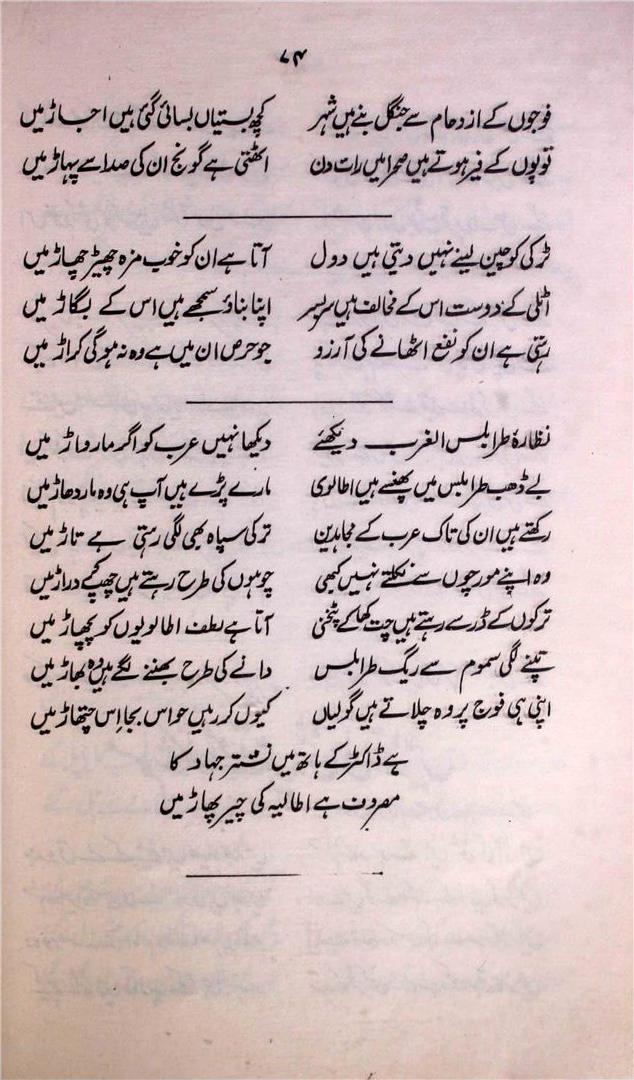 ۷۴
فوجوں کے ازدحام سے جنگل بنے ہیں شہر کچھ بستیاں بسائی گئی ہیں اجاڑ میں
توپوں کے فیر ہوتے ہیں صحرا میں رات دن اٹھتی ہے گونج ان کی صدا سے پہاڑ میں
ٹرکی کو چین لینے نہیں دیتی ہیں دول آتا ہے ان کو خوب مزہ چھیڑ چھاڑ میں
اٹلی کے دوست اس کے مخالف ہیں سربسر اپنا بناؤ سمجھے ہیں اس کے بگاڑ میں
رہتی ہے ان کو نفع اٹھانے کی آرزو جو حرص ان میں ہے وہ نہ ہوگی کراڑ میں
نظارۂ طرابلس الغرب دیکھئے دیکھا نہیں عرب کو اگر مارواڑ میں
بے ڈھب طرابلس میں پھنسے ہیں اطالوی مارے پڑے ہیں آپ ہی وہ مار دھاڑ میں
رکھتے ہیں ان کی تاک عرب کے مجاہدین ترکی سپاہ بھی لگی رہتی ہے تاڑ میں
وہ اپنے مورچوں سے نکلتے نہیں کبھی چوہوں کی طرح رہتے ہیں چھپکے دراڑ میں
ترکوں کے ڈر سے رہتے ہیں چت کھا کے پٹخنی آتا ہے لطف اطالویوں کو پچھاڑ میں
تپنے لگی سموم سے ریگ طرابلس دانے کی طرح بھننے لگے ہیں وہ بھاڑ میں
اپنی ہی فوج پر وہ چلاتے ہیں گولیاں کیوں کر رہیں حواس بجا اس چتھاڑ میں
ہے ڈاکٹر کے ہاتھ میں نشتر جہاد کا
مصروف ہے اطالیہ کی چیر پھاڑ میں